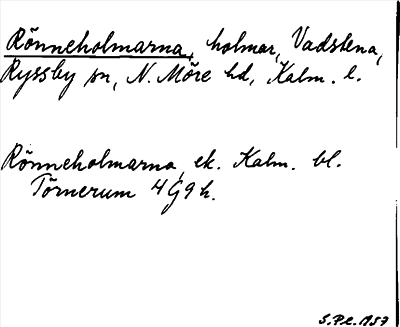 Rönneholmarna, holmar, Vadstena,
Ryssby sn, N. Möre hd, Kalm. l.
Rönneholmarna ek. Kalm. bl.
Törnerum 4G9h.
S.Pl. 1957